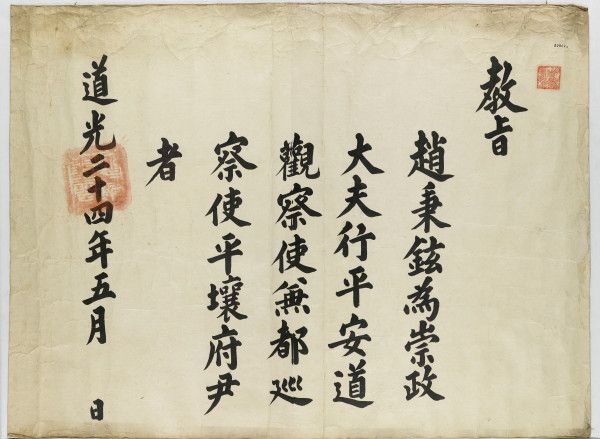 敎旨
趙秉鉉為崇政
大夫行平安道
觀察使兼都巡
察使平壤府尹
者
道光二十四年五月 日